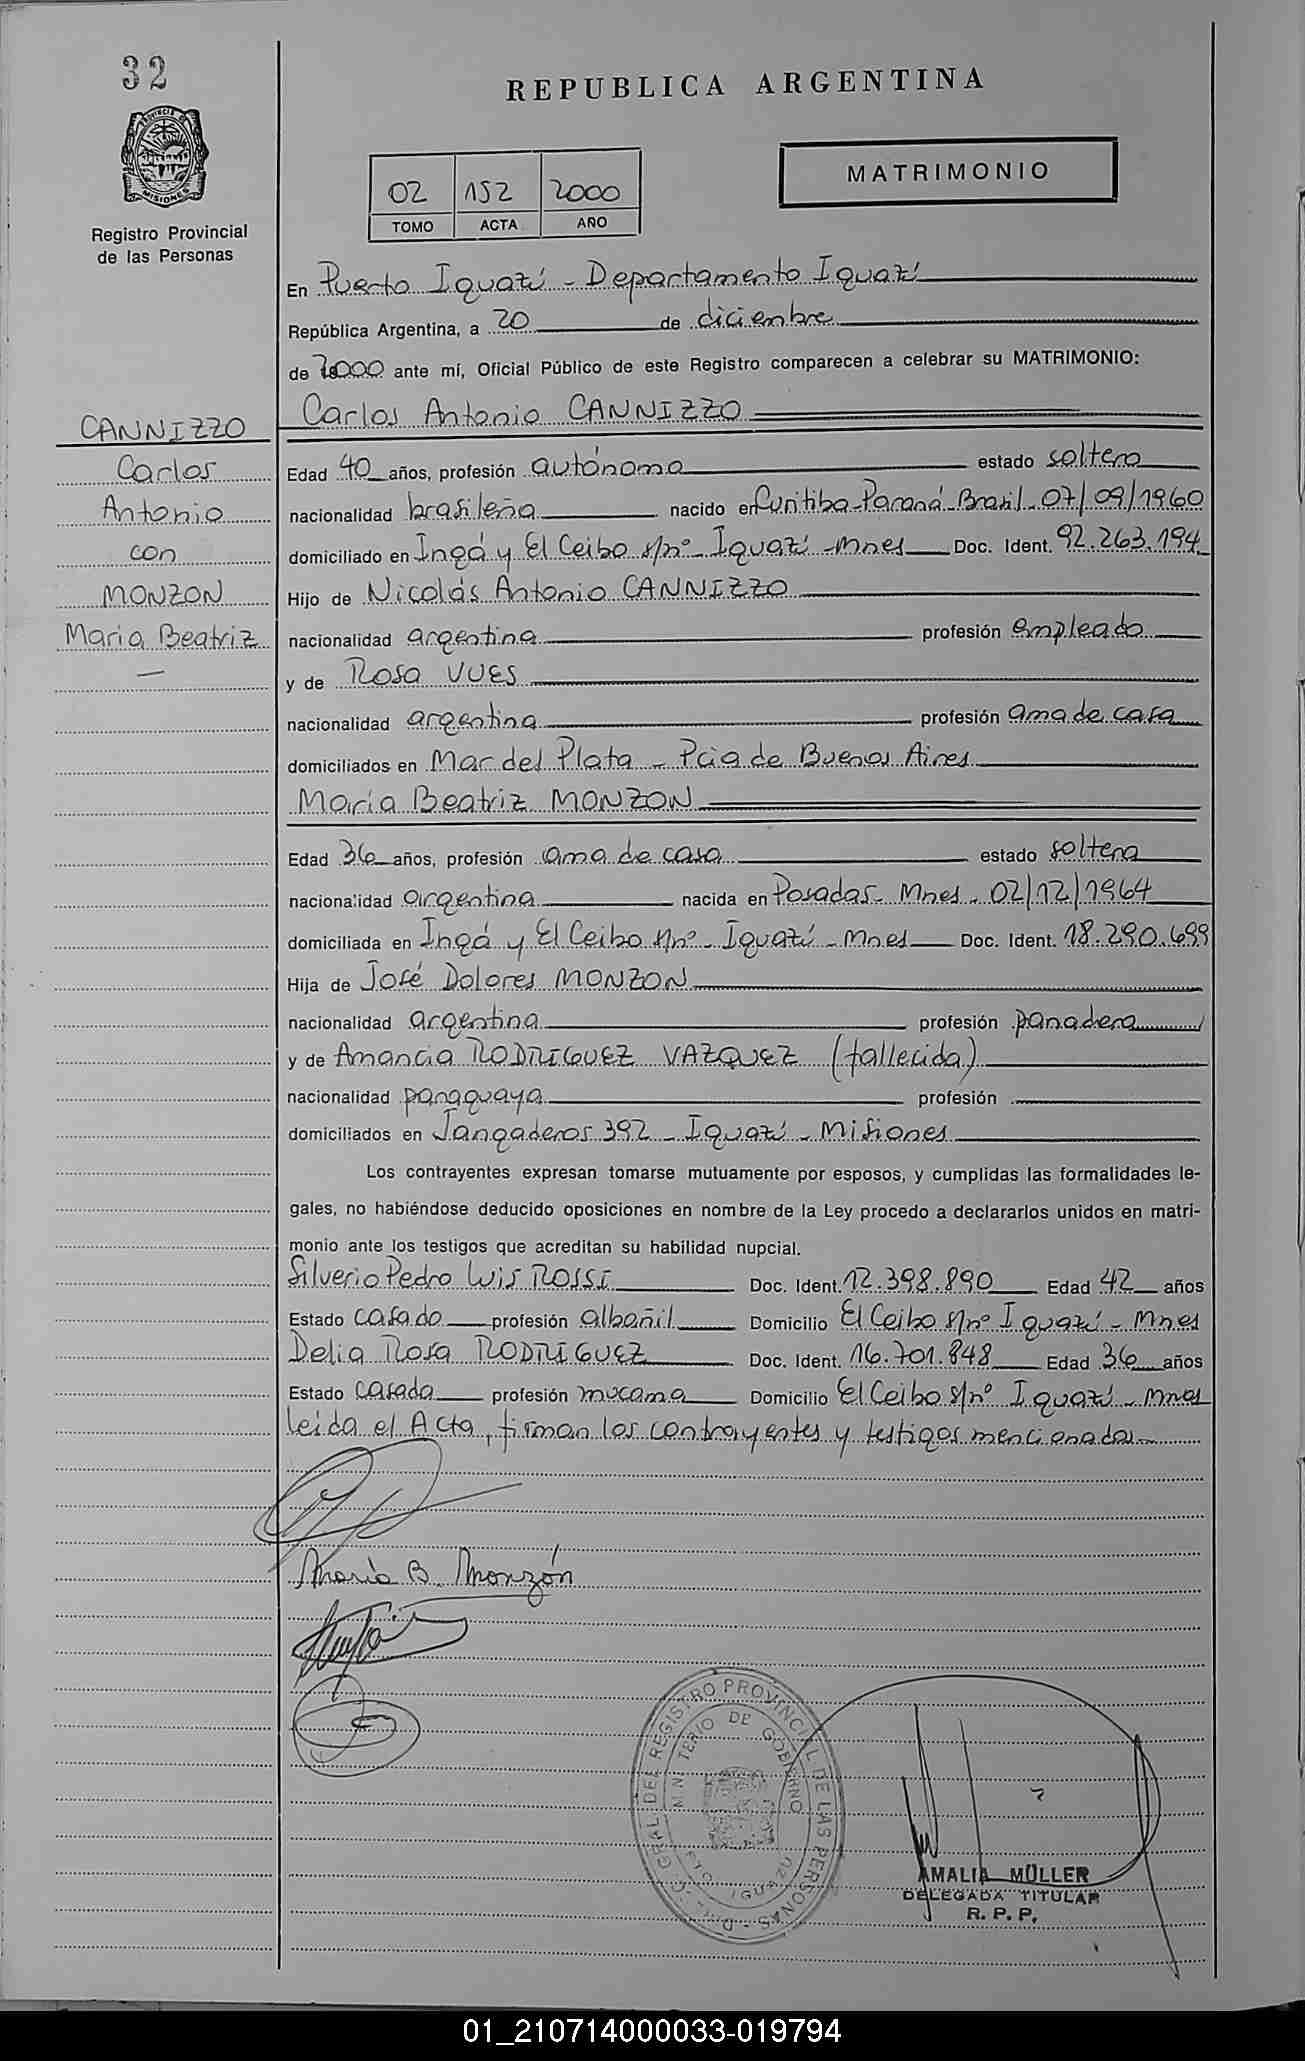 32
REPUBLICA ARGENTINA
MATRIMONIO
02 152 2000
TOMO ACTA AÑO
Registro Provincial
de las Personas
En Puerto Iguazú - Departamento Iguazú
República Argentina, a 20 de diciembre
de 2000 ante mí, Oficial Público de este Registro comparecen a celebrar su MATRIMONIO:
Carlos Antonio CANNIZZO
CANNIZZO
Carlos
Antonio
con
MONZON
Maria Beatriz
Edad 40 años, profesión autónomo estado soltero
nacionalidad brasileña nacido en Curitiba-Paraná-Brasil-07/09/1960
domiciliado en Ingá y El Ceibo s/nº - Iguazú - Mnes Doc. Ident. 92.263.194
Hijo de Nicolás Antonio CANNIZZO
nacionalidad argentina profesión empleado
y de Rosa VUES
nacionalidad argentina profesión ama de casa
domiciliados en Mar del Plata - Pcia de Buenos Aires
María Beatriz MONZON
Edad 36 años, profesión ama de casa estado soltera
nacionalidad argentina nacida en Posadas - Mnes - 02/12/1964
domiciliada en Ingá y El Ceibo s/nº - Iguazú - Mnes Doc. Ident. 18.290.699
Hija de José Dolores MONZON
nacionalidad argentina profesión panadero
y de Amancia RODRIGUEZ VAZQUEZ (fallecida)
nacionalidad paraguaya profesión
domiciliados en Jangaderos 392 - Iguazú - Misiones
Los contrayentes expresan tomarse mutuamente por esposos, y cumplidas las formalidades le-
gales, no habiéndose deducido oposiciones en nombre de la Ley procedo a declararlos unidos en matri-
monio ante los testigos que acreditan su habilidad nupcial.
Silverio Pedro Luis ROSSI Doc. Ident. 12.398.890 Edad 42 años
Estado casado profesión albañil Domicilio El Ceibo s/nº Iguazú - Mnes
Delia Rosa RODRIGUEZ Doc. Ident. 16.701.848 Edad 36 años
Estado casada profesión mucama Domicilio El Ceibo s/nº Iguazú - Mnes
leída el Acta, firman los contrayentes y testigos mencionados
María B. Monzón
DIR. GRAL. DEL REGISTRO PROVINCIAL DE LAS PERSONAS
MINISTERIO DE GOBIERNO
AMALIA MÜLLER
DELEGADA TITULAR
R. P. P.
01_210714000033-019794